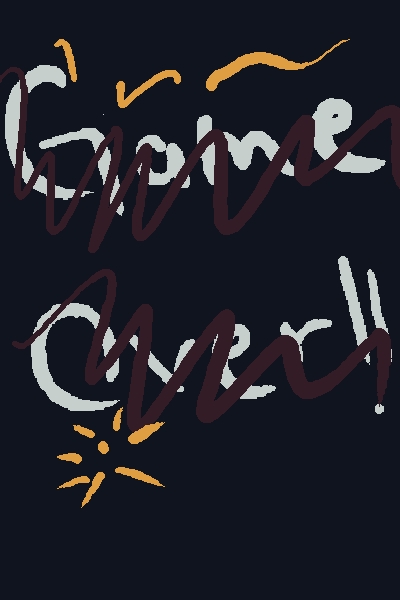 Game
Over!!